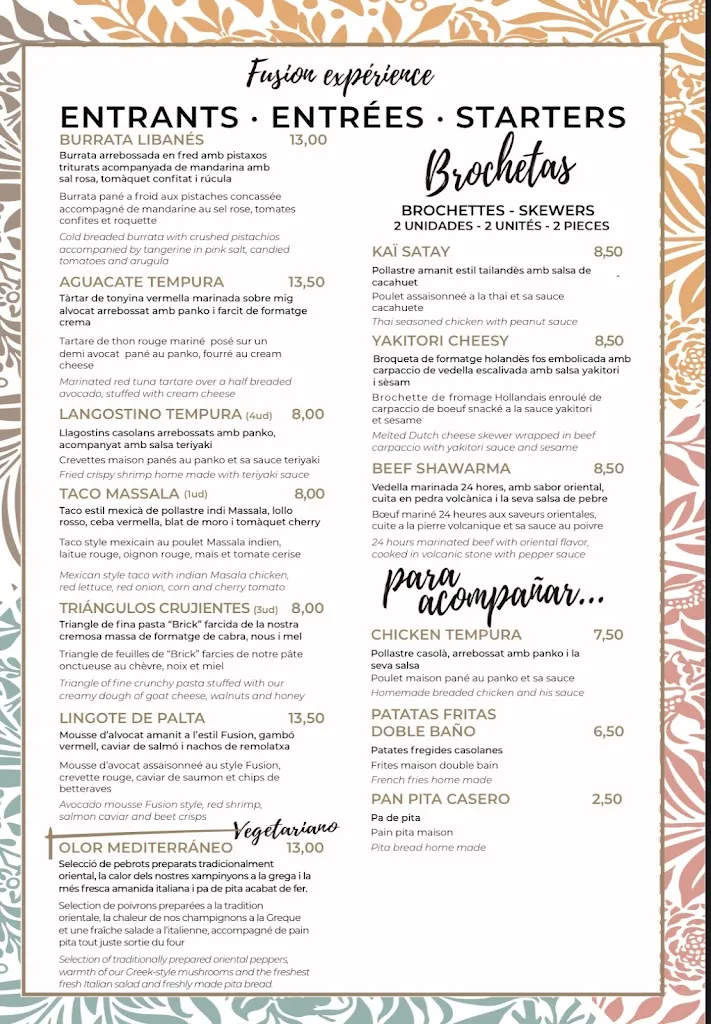 Fusion expérience
ENTRANTS · ENTRÉES · STARTERS
BURRATA LIBANÉS 13,00
Burrata arrebossada en fred amb pistaxos
triturats acompanyada de mandarina amb
sal rosa, tomàquet confitat i rúcula
Burrata pané a froid aux pistaches concassée
accompagné de mandarine au sel rose, tomates
confites et roquette
Cold breaded burrata with crushed pistachios
accompanied by tangerine in pink salt, candied
tomatoes and arugula
AGUACATE TEMPURA 13,50
Tàrtar de tonyina vermella marinada sobre mig
alvocat arrebossat amb panko i farcit de formatge
crema
Tartare de thon rouge mariné posé sur un
demi avocat pané au panko, fourré au cream
cheese
Marinated red tuna tartare over a half breaded
avocado, stuffed with cream cheese
LANGOSTINO TEMPURA (4ud) 8,00
Llagostins casolans arrebossats amb panko,
acompanyat amb salsa teriyaki
Crevettes maison panés au panko et sa sauce teriyaki
Fried crispy shrimp home made with teriyaki sauce
TACO MASSALA (1ud) 8,00
Taco estil mexicà de pollastre indi Massala, lollo
rosso, ceba vermella, blat de moro i tomàquet cherry
Taco style mexicain au poulet Massala indien,
laitue rouge, oignon rouge, mais et tomate cerise
Mexican style taco with indian Masala chicken,
red lettuce, red onion, corn and cherry tomato
TRIÁNGULOS CRUJIENTES (3ud) 8,00
Triangle de fina pasta "Brick" farcida de la nostra
cremosa massa de formatge de cabra, nous i mel
Triangle de feuilles de "Brick" farcies de notre pâte
onctueuse au chèvre, noix et miel
Triangle of fine crunchy pasta stuffed with our
creamy dough of goat cheese, walnuts and honey
LINGOTE DE PALTA 13,50
Mousse d'alvocat amanit a l'estil Fusion, gambó
vermell, caviar de salmó i nachos de remolatxa
Mousse d'avocat assaisonneé au style Fusion,
crevette rouge, caviar de saumon et chips de
betteraves
Avocado mousse Fusion style, red shrimp,
salmon caviar and beet crisps
Vegetariano
OLOR MEDITERRÁNEO 13,00
Selecció de pebrots preparats tradicionalment
oriental, la calor dels nostres xampinyons a la grega i la
més fresca amanida italiana i pa de pita acabat de fer.
Selection de poivrons preparées a la tradition
orientale, la chaleur de nos champignons a la Greque
et une fraîche salade a l'italienne, accompagné de pain
pita tout juste sortie du four
Selection of traditionally prepared oriental peppers,
warmth of our Greek-style mushrooms and the freshest
fresh Italian salad and freshly made pita bread.
Brochetas
BROCHETTES - SKEWERS
2 UNIDADES - 2 UNITÉS - 2 PIECES
KAÏ SATAY 8,50
Pollastre amanit estil tailandès amb salsa de
cacahuet
Poulet assaisonneé a la thaï et sa sauce
cacahuete
Thai seasoned chicken with peanut sauce
YAKITORI CHEESY 8,50
Broqueta de formatge holandès fos embolicada amb
carpaccio de vedella escalivada amb salsa yakitori
i sèsam
Brochette de fromage Hollandais enroulé de
carpaccio de boeuf snacké a la sauce yakitori
et sesame
Melted Dutch cheese skewer wrapped in beef
carpaccio with yakitori sauce and sesame
BEEF SHAWARMA 8,50
Vedella marinada 24 hores, amb sabor oriental,
cuita en pedra volcànica i la seva salsa de pebre
Bœuf mariné 24 heures aux saveurs orientales,
cuite a la pierre volcanique et sa sauce au poivre
24 hours marinated beef with oriental flavor,
cooked in volcanic stone with pepper sauce
para
acompañar...
CHICKEN TEMPURA 7,50
Pollastre casolà, arrebossat amb panko i la
seva salsa
Poulet maison pané au panko et sa sauce
Homemade breaded chicken and his sauce
PATATAS FRITAS
DOBLE BAÑO 6,50
Patates fregides casolanes
Frites maison double bain
French fries home made
PAN PITA CASERO 2,50
Pa de pita
Pain pita maison
Pita bread home made